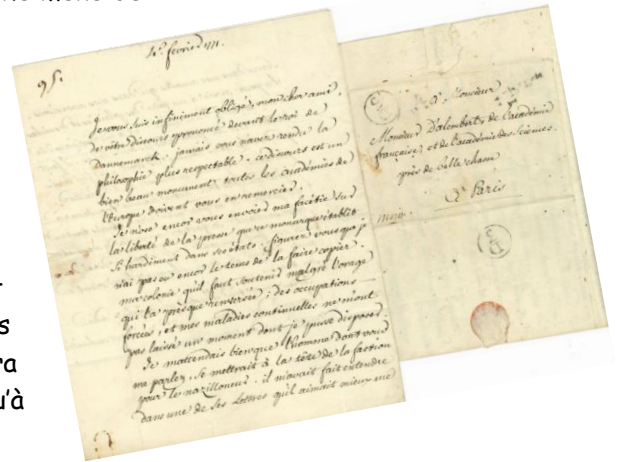 4e. fevrier 1771.
95.
Je vous suis infiniment obligé, mon cher ami,
de votre discours prononcé devant le roi de
Dannemarck. jamais vous n'avez rendu la
philosophie plus respectable. ce discours est un
bien beau monument. toutes les académies de
l'Europe doivent vous en remercier.
Je n'ose encor vous envoier ma facétie sur
la liberté de la presse que ce monarque établit
si hardiment dans ses états. figurez vous que je
n'ai pas eu encor le tems de la faire copier.
ma colonie qu'il faut soutenir malgré l'orage
qui l'a presque renversée, des occupations
forcées, et mes maladies continuelles ne m'ont
pas laissé un moment dont je pusse disposer.
Je m'attendais bien que l'homme dont vous
me parlez, se mettrait à la tête de la faction
pour le nazilloneur. il m'avait fait entendre
dans une de ses Lettres qu'il aimait mieux
À Monsieur
Monsieur Dalembert, de l'académie
française, et de l'académie des sciences.
près de belle chasse
À Paris
s
ra
u'à